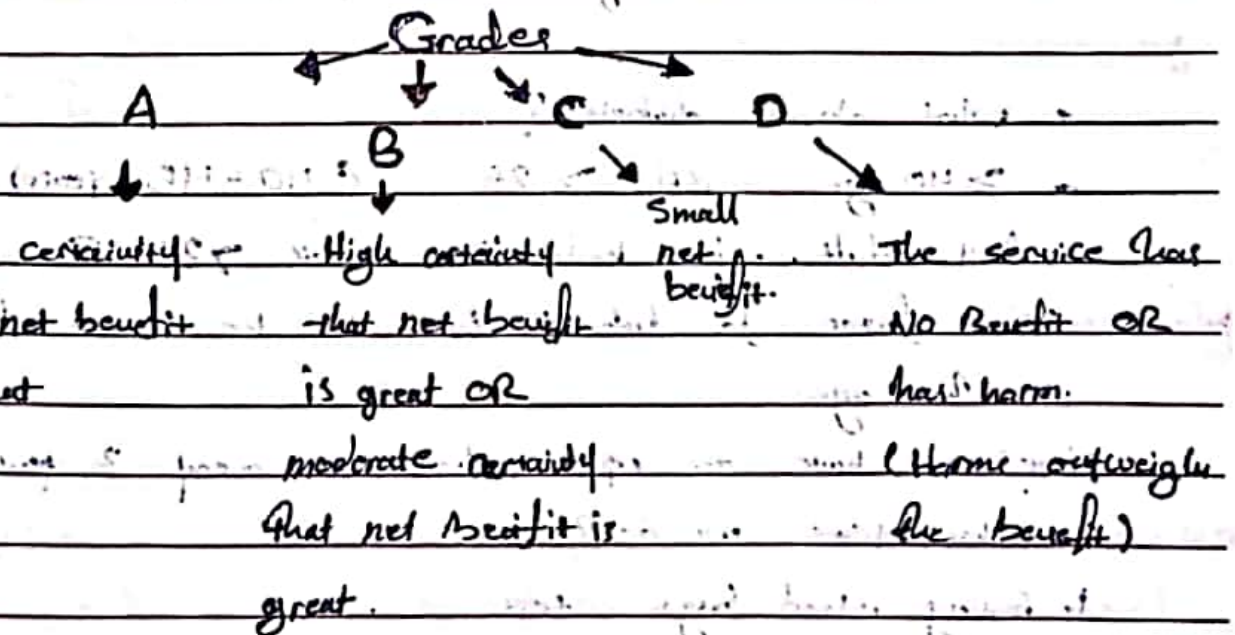 Grades
A B C D
certainty
net benefit
High certainty
that net benefit
is great OR
moderate certainty
that net benefit is
great.
Small
net
benefit.
The service has
No Benefit OR
has harm.
(Harme outweighs
the benefit)